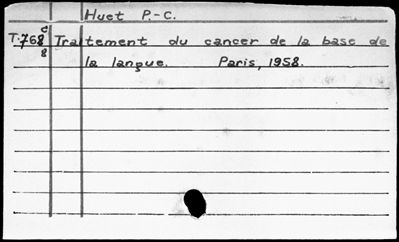 Huet P.-C.
T.768 c 8 Traitement du cancer de la base de
la langue. Paris, 1958.